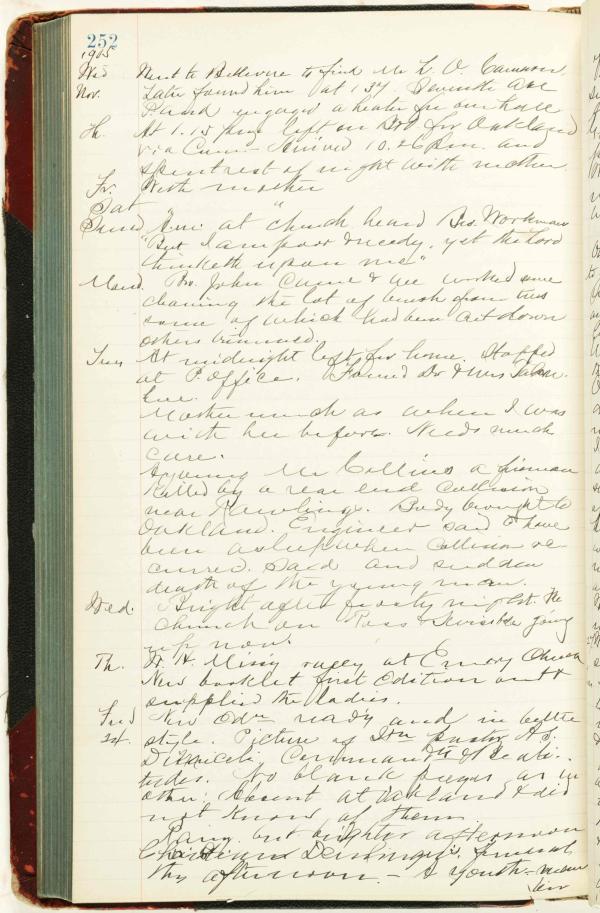 252
1905
Wed Went to Bellevue to find Mr L. V. Cameron.
Nov. Later found him at 137 Seventh Ave
engaged a heater for our house
Th. At 1.15 pm left on B&O for Oakland
via Cum. Arrived 10.26 pm. and
spent rest of night with mother
Fr. With mother
Sat " "
Sund Am. at church heard Bro. Workman
"But I am poor & needy, yet the Lord
thinketh upon me"
Mond. Bro. John came & we worked some
cleaning the lot of brush from trees
some of which had been cut down
others trimmed.
Tues At midnight left for home. Stopped
at P. Office. Found Dr & Mrs
Mother much as when I was
with her before. Needs much
care.
A young Mr Collins a fireman
killed by a rear end collision
near Rawlings. Body brought to
Oakland. Engineer said to have
been asleep when collision oc-
curred. Sad and sudden
death of the young man.
Wed. Bright after frosty night. The
church on Ross & Division going
up now.
Th. W. H. Missy rally at Emory Church
New booklet first edition out &
supplied the ladies.
Frid New Edn ready and in better
24. style. Picture of pastor, Ap.
Commandts & Beati-
tudes. No blank pages as in
other. Absent at Oakland & did
not know of them.
Rainy but brighter afternoon
funeral
this afternoon. – A youth –